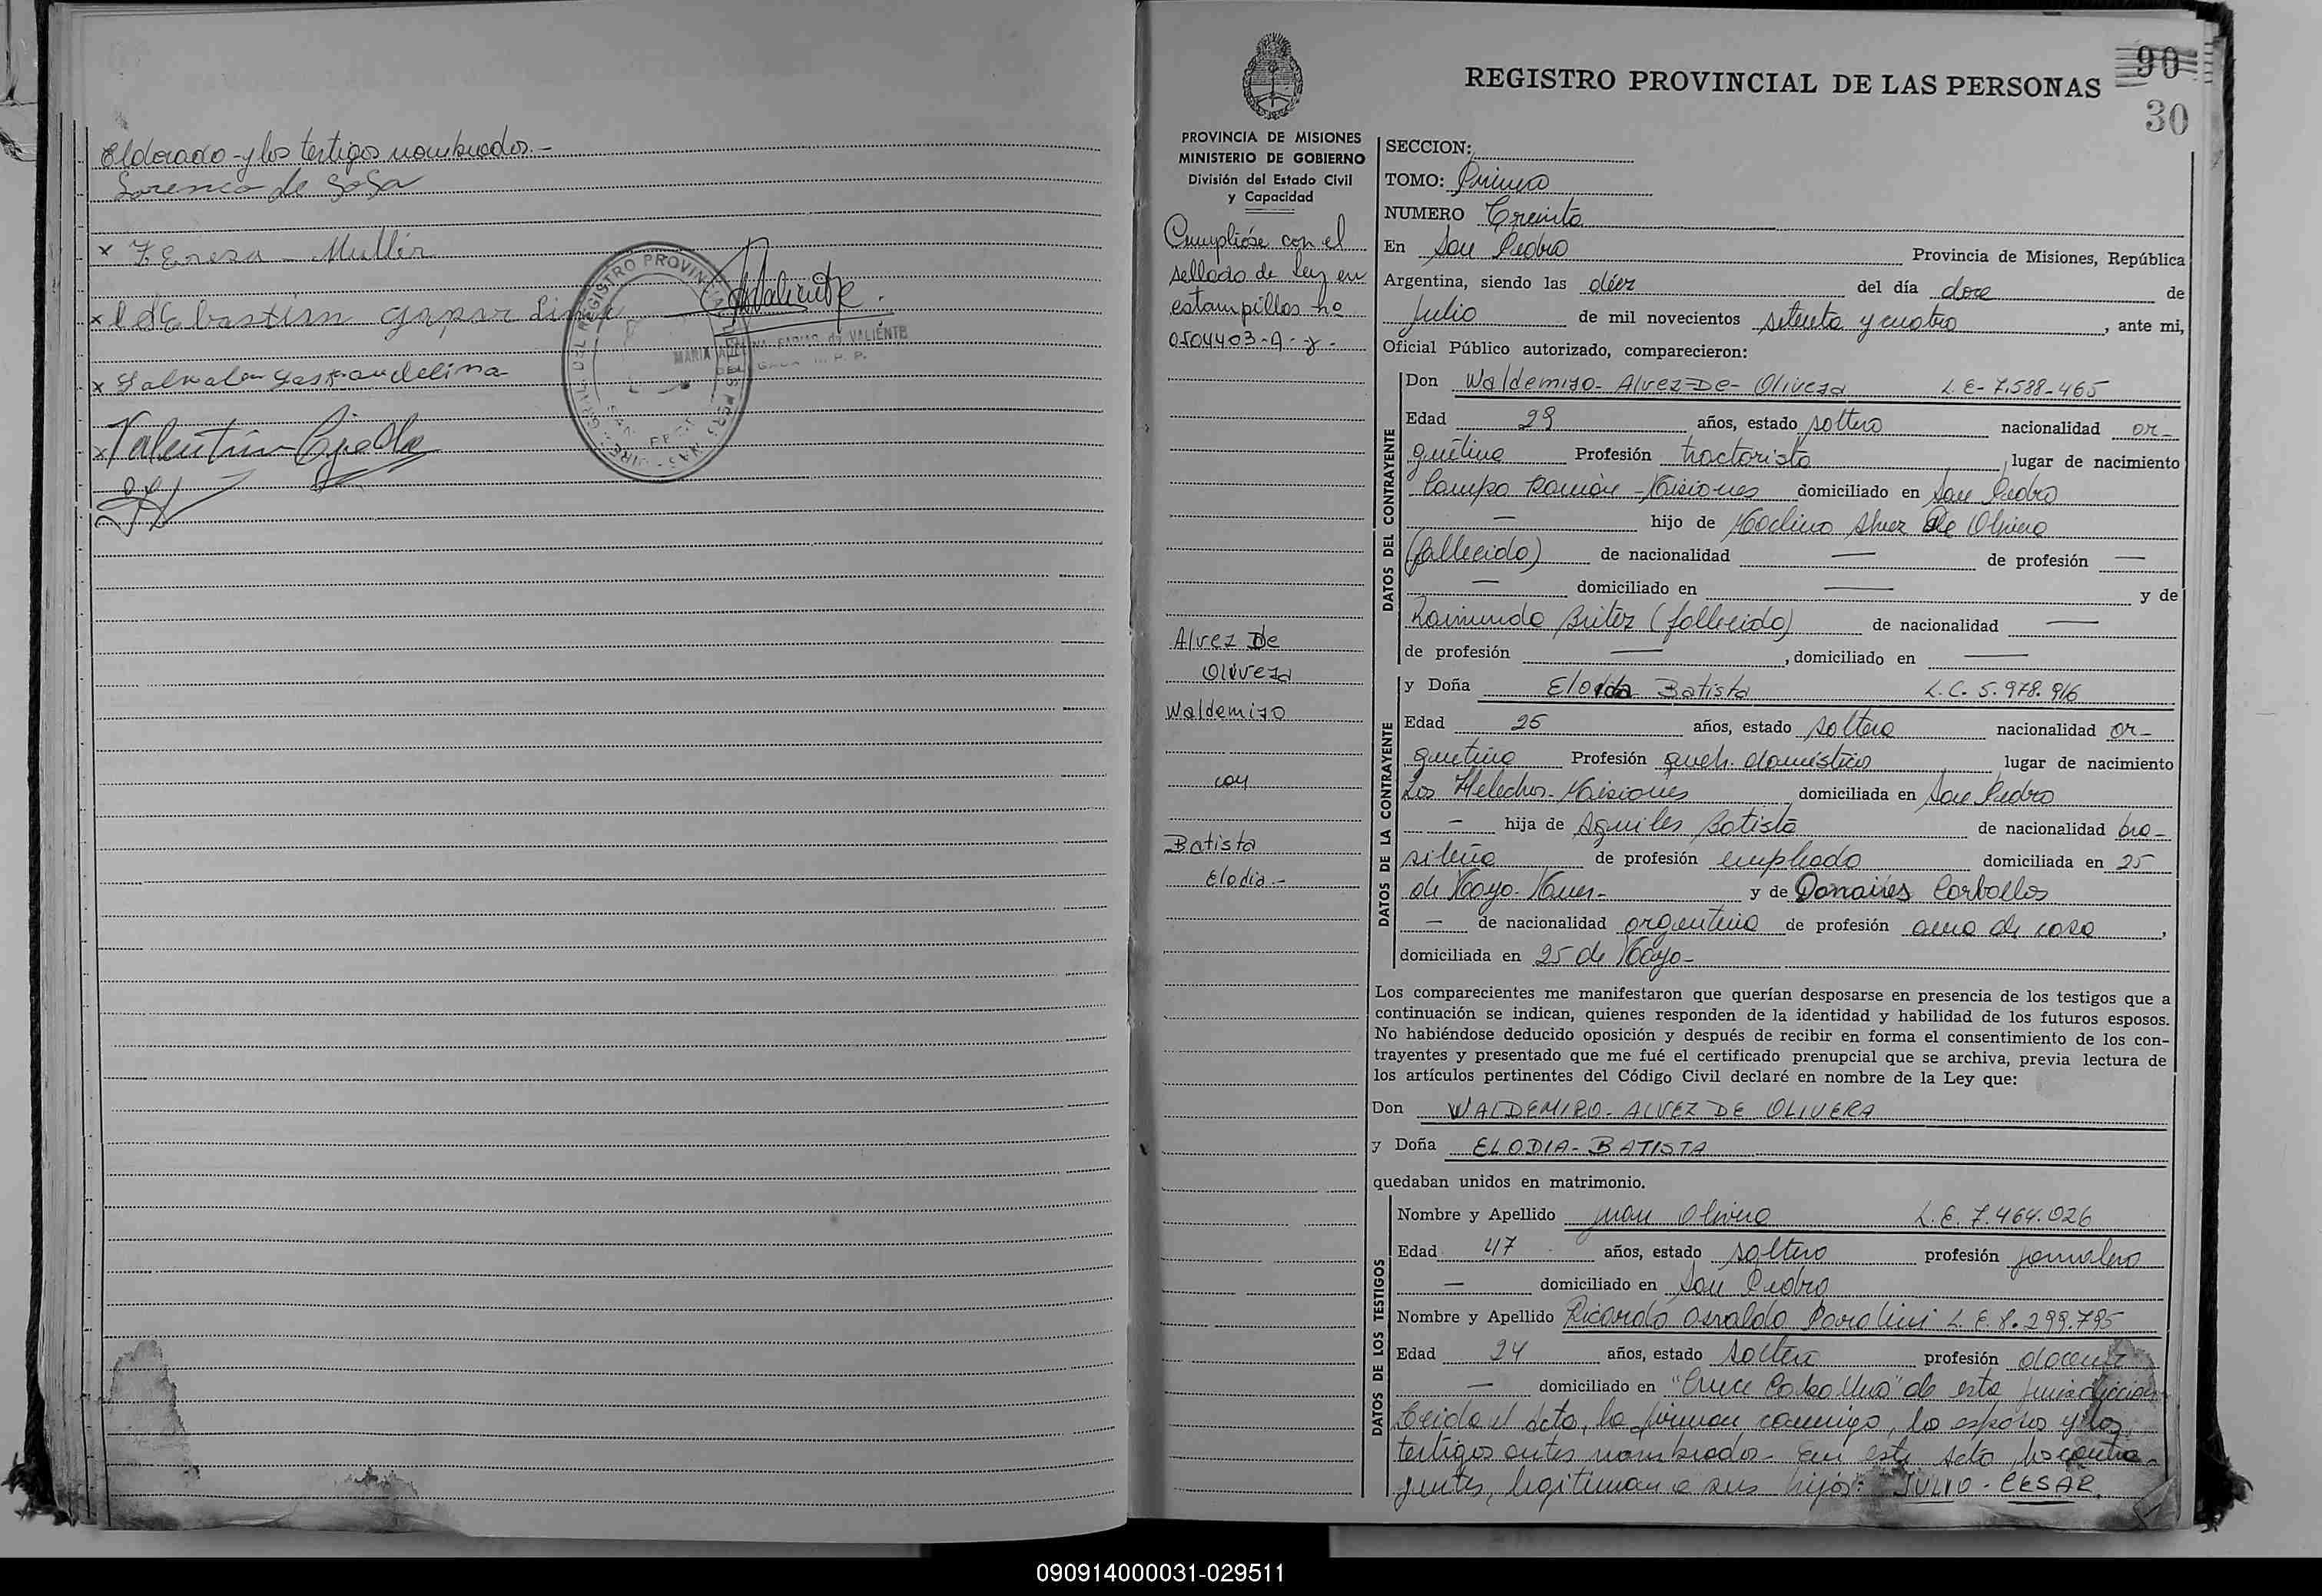 Eldorado - y los testigos nombrados.-
Lorenco de Sosa
x Teresa - Muller
Valiente.
MARIA
de VALIENTE
x Valentín Ojeda
REGISTRO PROVINCIAL DE LAS PERSONAS
90
30
PROVINCIA DE MISIONES
MINISTERIO DE GOBIERNO
División del Estado Civil
y Capacidad
Cumplióse con el
sellado de ley en
estampillas no
0504403-A-
Alvez De
Olivera
Waldemiro
con
Batista
Elodia.-
SECCION:
TOMO: Primero
NUMERO Treinta
En San Pedro Provincia de Misiones, República
Argentina, siendo las diez del día doce de
Julio de mil novecientos setenta y cuatro, ante mi,
Oficial Público autorizado, comparecieron:
DATOS DEL CONTRAYENTE
Don Waldemiro-Alvez-De-Olivera L.E-7.588-465
Edad 29 años, estado soltero nacionalidad ar-
gentina Profesión tractorista, lugar de nacimiento
Campo Ramón - Misiones domiciliado en San Pedro
— hijo de Alvez De Olivera
(fallecido) de nacionalidad — de profesión —
— domiciliado en — y de
Raimunda Britez (fallecida) de nacionalidad —
de profesión —, domiciliado en —
DATOS DE LA CONTRAYENTE
y Doña Elodia Batista L.C. 5.978.916
Edad 25 años, estado soltera nacionalidad ar-
gentina Profesión queh. domésticos lugar de nacimiento
Los Helechos-Misiones domiciliada en San Pedro
— hija de Aquiles Batista de nacionalidad bra-
sileña de profesión empleado domiciliada en 25
de Mayo- Mnes- y de Carballos
— de nacionalidad argentina de profesión ama de casa,
domiciliada en 25 de Mayo-
Los comparecientes me manifestaron que querían desposarse en presencia de los testigos que a
continuación se indican, quienes responden de la identidad y habilidad de los futuros esposos.
No habiéndose deducido oposición y después de recibir en forma el consentimiento de los con-
trayentes y presentado que me fué el certificado prenupcial que se archiva, previa lectura de
los artículos pertinentes del Código Civil declaré en nombre de la Ley que:
Don WALDEMIRO-ALVEZ DE OLIVERA
y Doña ELODIA-BATISTA
quedaban unidos en matrimonio.
DATOS DE LOS TESTIGOS
Nombre y Apellido Juan Olivera L.E. 7.464.026
Edad 47 años, estado soltero profesión jornalero
— domiciliado en San Pedro
Nombre y Apellido Ricardo Osvaldo Parolini L.E. 8.299.795
Edad 24 años, estado soltero profesión docente
— domiciliado en "Cruce Caballero" de esta jurisdicción
Leida el Acta, la firman conmigo, los esposos y los
testigos antes nombrados- En este Acto, los contra-
yentes, legitiman a sus hijos: JULIO-CESAR,
090914000031-029511